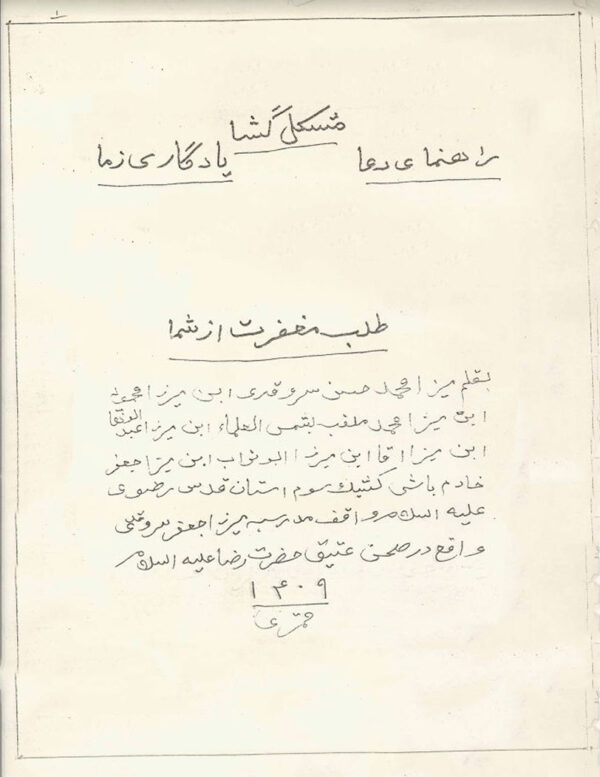 ۱
مشکل گشا
راهنمای دعا یادگاری زما
طلب مغفرت از شما
بقلم میرزا محمد حسن سروقدی ابن میرزا محمد
ابن میرزا محمد ملقب بشمس العلماء ابن میرزا عبد
ابن میرزا اقا ابن میرزا ابوتراب ابن میرزا جعفر
خادم باشی کشیک سوم استان قدس رضوی
علیه السلام واقف مدرسه میرزا جعفر سروقدی
واقع در صحن عتیق حضرت رضا علیه السلام
۱۴۰۹
قمری